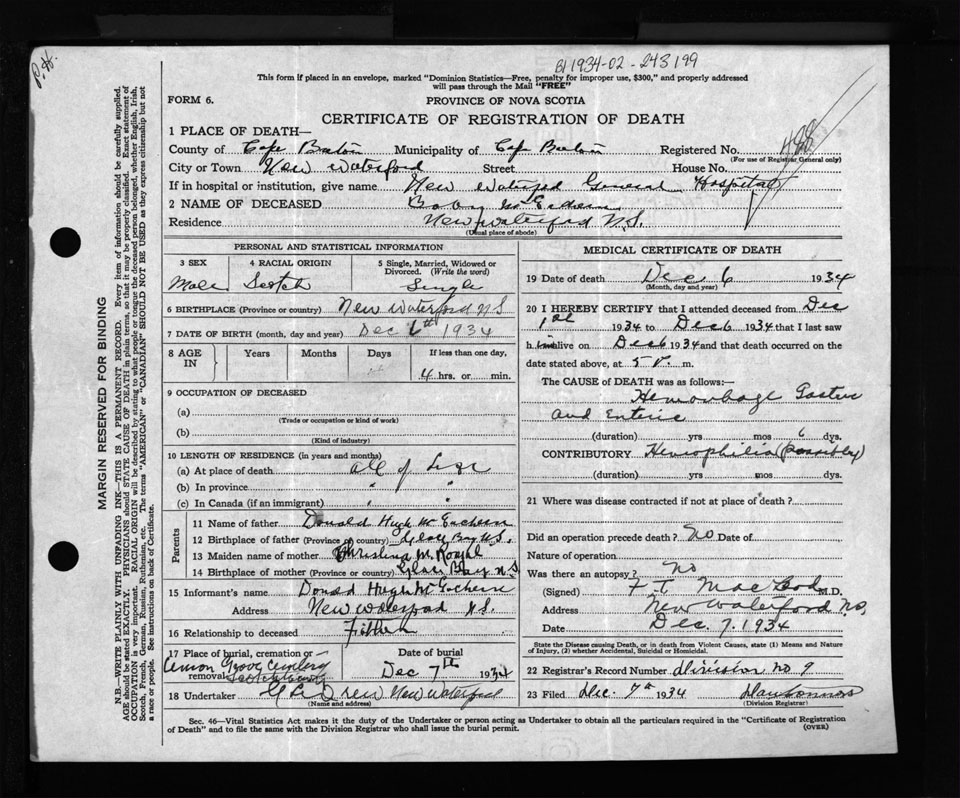 P.H.
1934-02-243199
This form if placed in an envelope, marked "Dominion Statistics—Free, penalty for improper use, $300," and properly addressed
will pass through the Mail "FREE"
FORM 6.
PROVINCE OF NOVA SCOTIA
CERTIFICATE OF REGISTRATION OF DEATH
1 PLACE OF DEATH—
County of Cape Breton Municipality of Cape Breton Registered No. 488
(For use of Registrar General only)
City or Town New Waterford Street House No.
If in hospital or institution, give name New Waterford General Hospital
2 NAME OF DECEASED Baby McEachern
Residence New Waterford N.S.
(Usual place of abode)
PERSONAL AND STATISTICAL INFORMATION
3 SEX
4 RACIAL ORIGIN
5 Single, Married, Widowed or Divorced. (Write the word)
Male Scotch Single
6 BIRTHPLACE (Province or country) New Waterford N S
7 DATE OF BIRTH (month, day and year) Dec 6th 1934
8 AGE IN
Years
Months
Days
If less than one day,
4 hrs. or min.
9 OCCUPATION OF DECEASED
(a)
(Trade or occupation or kind of work)
(b)
(Kind of industry)
10 LENGTH OF RESIDENCE (in years and months)
(a) At place of death all of life
(b) In province " "
(c) In Canada (if an immigrant) " "
Parents
11 Name of father Donald Hugh McEachern
12 Birthplace of father (Province or country) Glace Bay N.S.
13 Maiden name of mother Christina M.
14 Birthplace of mother (Province or country) Glace Bay N S
15 Informant's name Donald Hugh McEachern
Address New Waterford N.S.
16 Relationship to deceased Father
17 Place of burial, cremation or removal
Cemetery
Date of burial
Dec 7th 1934
18 Undertaker New Waterford
(Name and address)
MEDICAL CERTIFICATE OF DEATH
19 Date of death Dec 6 1934
(Month, day and year)
20 I HEREBY CERTIFY that I attended deceased from Dec
1st 1934 to Dec 6 1934 that I last saw
h im alive on Dec 6 1934 and that death occurred on the
date stated above, at 5 P. m.
The CAUSE of DEATH was as follows:—
Hemorrhage Gastric
and Enteric
(duration) yrs mos 6 dys.
CONTRIBUTORY Hemophilia (possibly)
(duration) yrs. mos. dys.
21 Where was disease contracted if not at place of death?
Did an operation precede death? No Date of
Nature of operation
Was there an autopsy? No
(Signed) F T MacLeod M.D.
Address New Waterford N.S.
Date Dec. 7. 1934
State the Disease causing Death, or in death from Violent Causes, state (1) Means and Nature of Injury, (2) whether Accidental, Suicidal or Homicidal.
22 Registrar's Record Number division no 9
23 Filed Dec. 7th 1934
(Division Registrar)
Sec. 46—Vital Statistics Act makes it the duty of the Undertaker or person acting as Undertaker to obtain all the particulars required in the "Certificate of Registration
of Death" and to file the same with the Division Registrar who shall issue the burial permit.
(OVER)
MARGIN RESERVED FOR BINDING
N.B.—WRITE PLAINLY WITH UNFADING INK—THIS IS A PERMANENT RECORD. Every item of information should be carefully supplied.
AGE should be stated EXACTLY. PHYSICIANS should STATE CAUSE OF DEATH in plain terms, so that it may be properly classified. Exact statement of
OCCUPATION is very important. RACIAL ORIGIN will be described by stating to what people or tongue the deceased person belonged, whether English, Irish,
Scotch, French, German, Russian, Ruthenian, etc. The terms "AMERICAN" or "CANADIAN" SHOULD NOT BE USED as they express citizenship but not
a race or people. See instructions on back of Certificate.